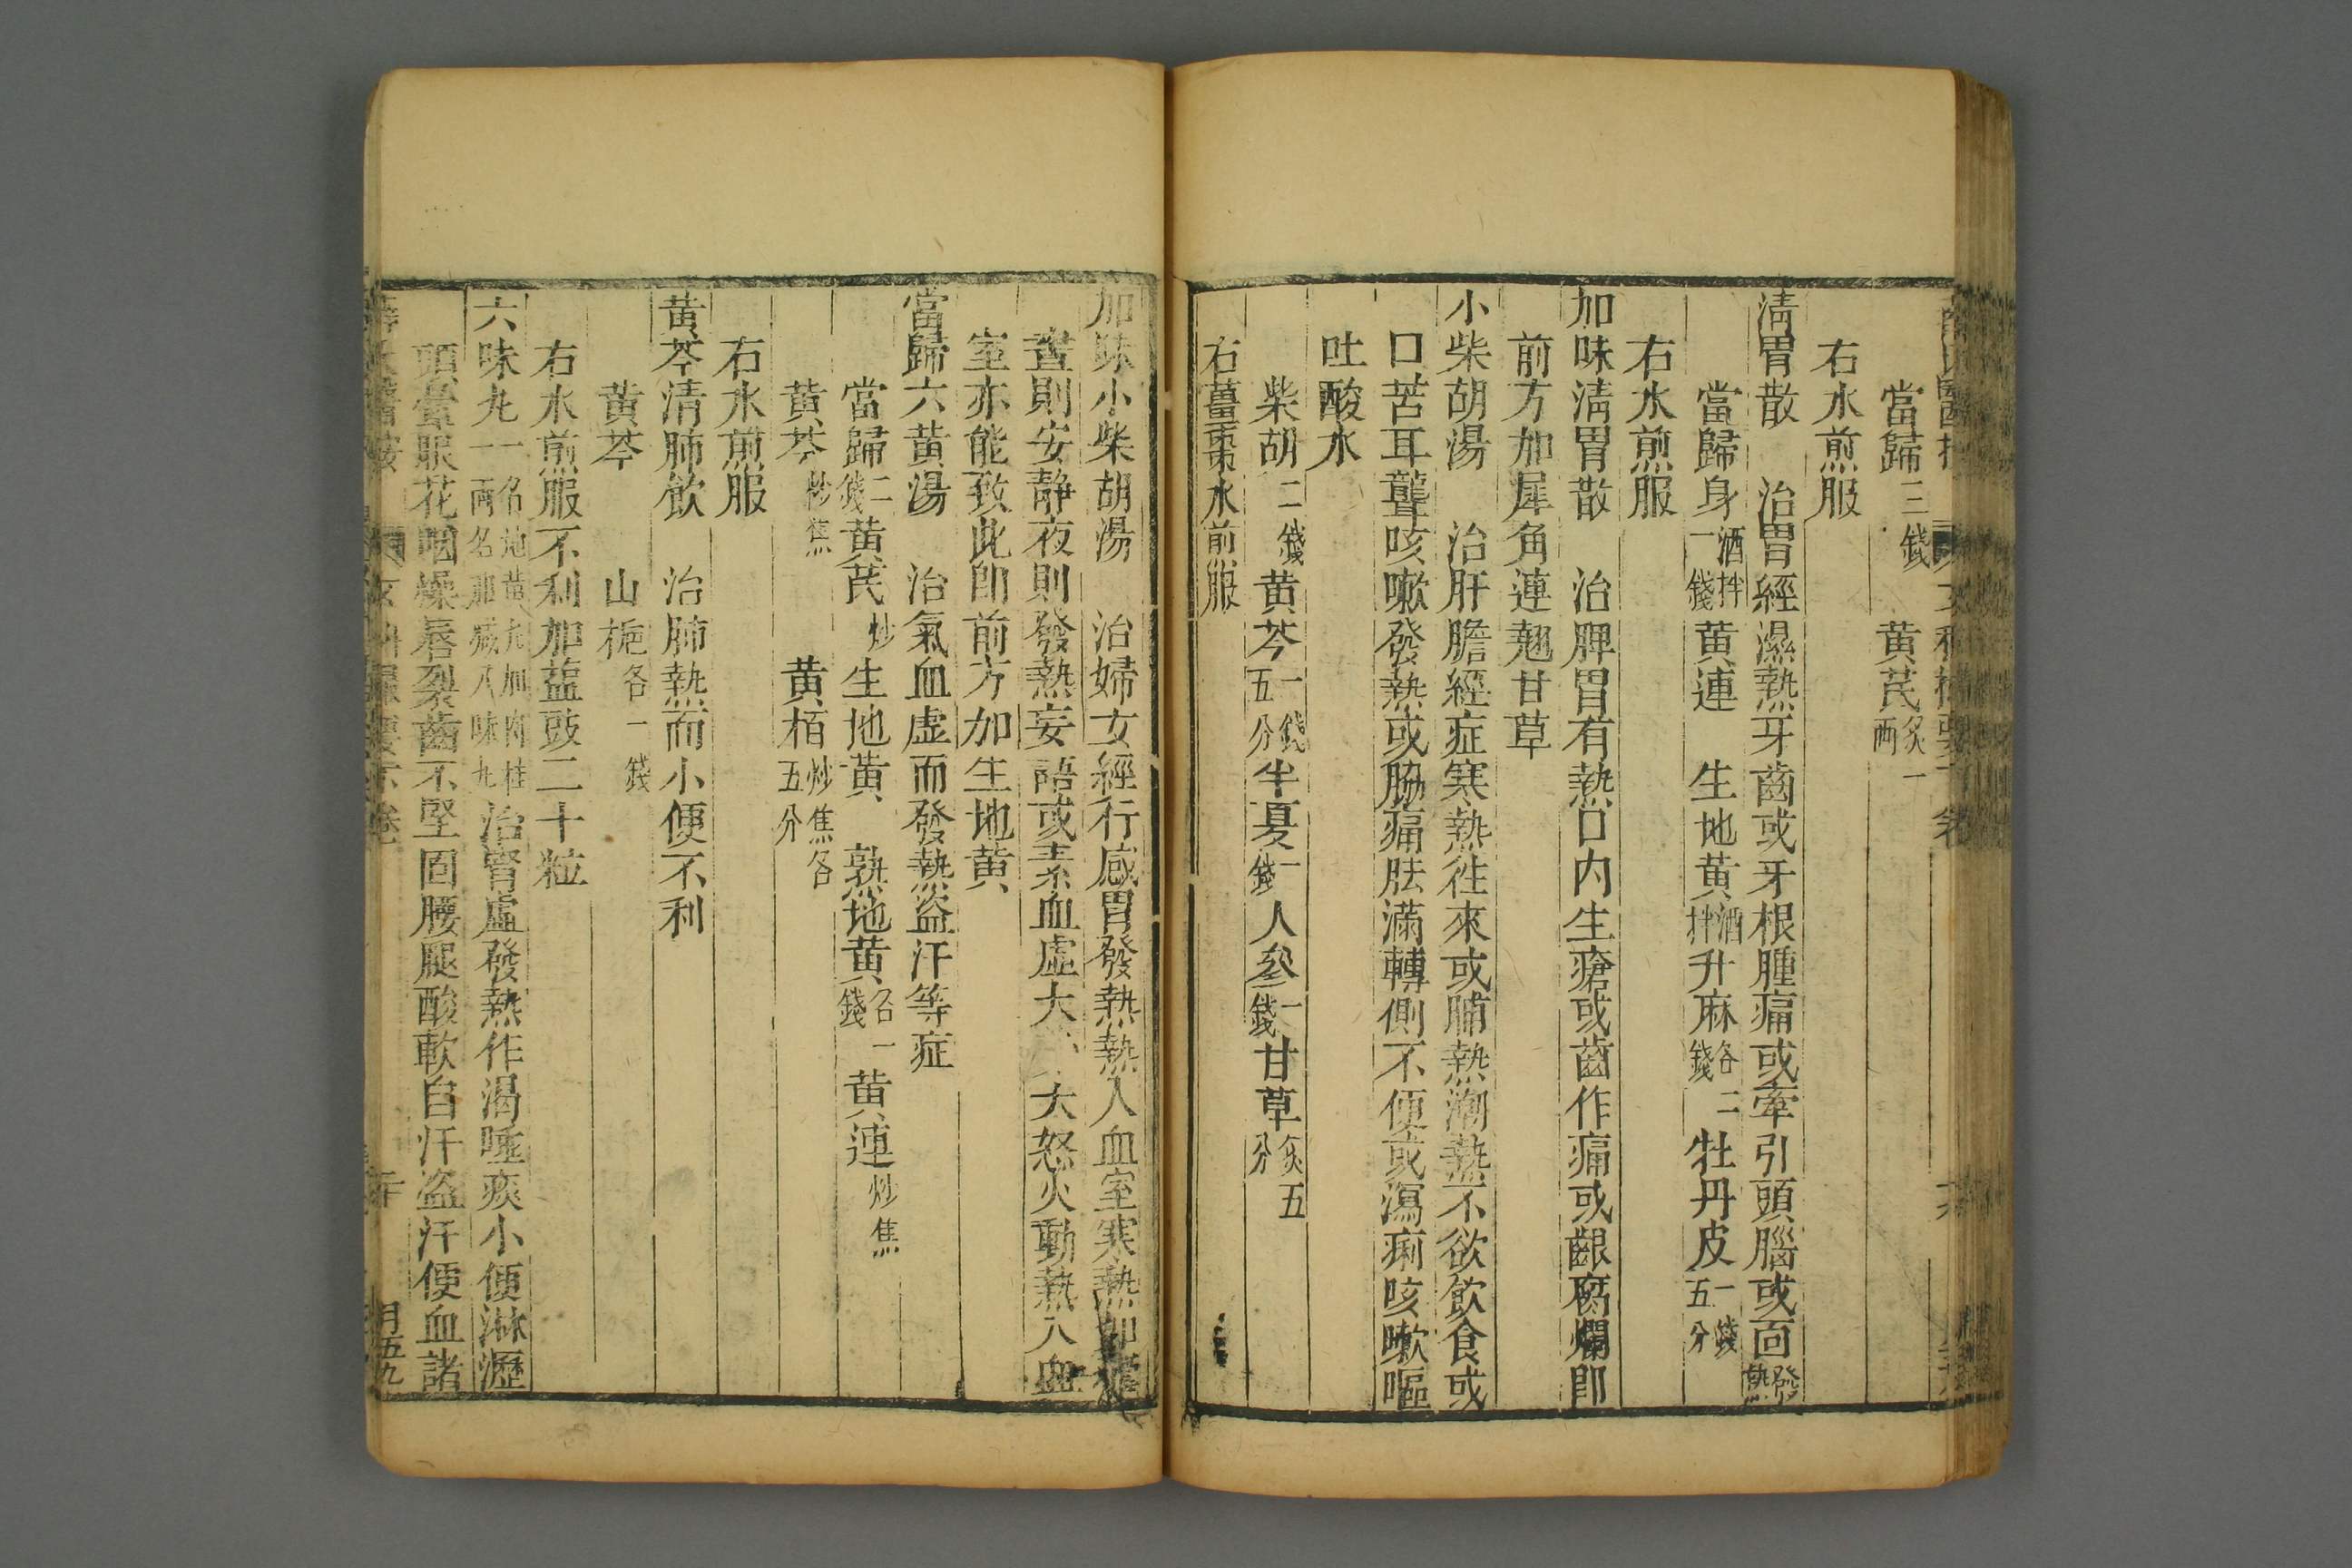 當歸三錢　黃芪炙一兩
右水煎服
清胃散　治胃經濕熱牙齒或牙根腫痛或牽引頭腦或面發熱
當歸身酒拌一錢黃連　生地黃酒拌升麻各二錢牡丹皮一錢五分
右水煎服
加味清胃散　治脾胃有熱口内生瘡或齒作痛或齦腐爛即
前方加犀角連翹甘草
小柴胡湯　治肝膽經症寒熱徃來或晡熱潮熱不欲飲食或
口苦耳聾咳嗽發熱或脇痛胠滿轉側不便或瀉痢咳嗽嘔
吐酸水
柴胡二錢黃芩一錢五分半夏一錢人參一錢甘草炙五分
右薑棗水煎服
加味小柴胡湯　治婦女經行感冒發熱熱入血室寒熱如瘧
晝則安静夜則發熱妄語或素血虛大　大怒火動熱入血
室亦能致此即前方加生地黃
當歸六黃湯　治氣血虛而發熱盗汗等症
當歸二錢黃芪炒生地黃　熟地黃各一錢黃連炒焦
黃芩炒焦　黃栢炒焦各五分
右水煎服
黃芩清肺飲　治肺熱而小便不利
黃芩　山梔各一錢
右水煎服不利加盐豉二十粒
六味丸一名地黃丸加肉桂一兩名那减八味丸治腎虛發熱作渴唾痰小便淋瀝
頭暈眼花咽燥唇裂齒不堅固腰腿酸軟自汗盗汗便血諸